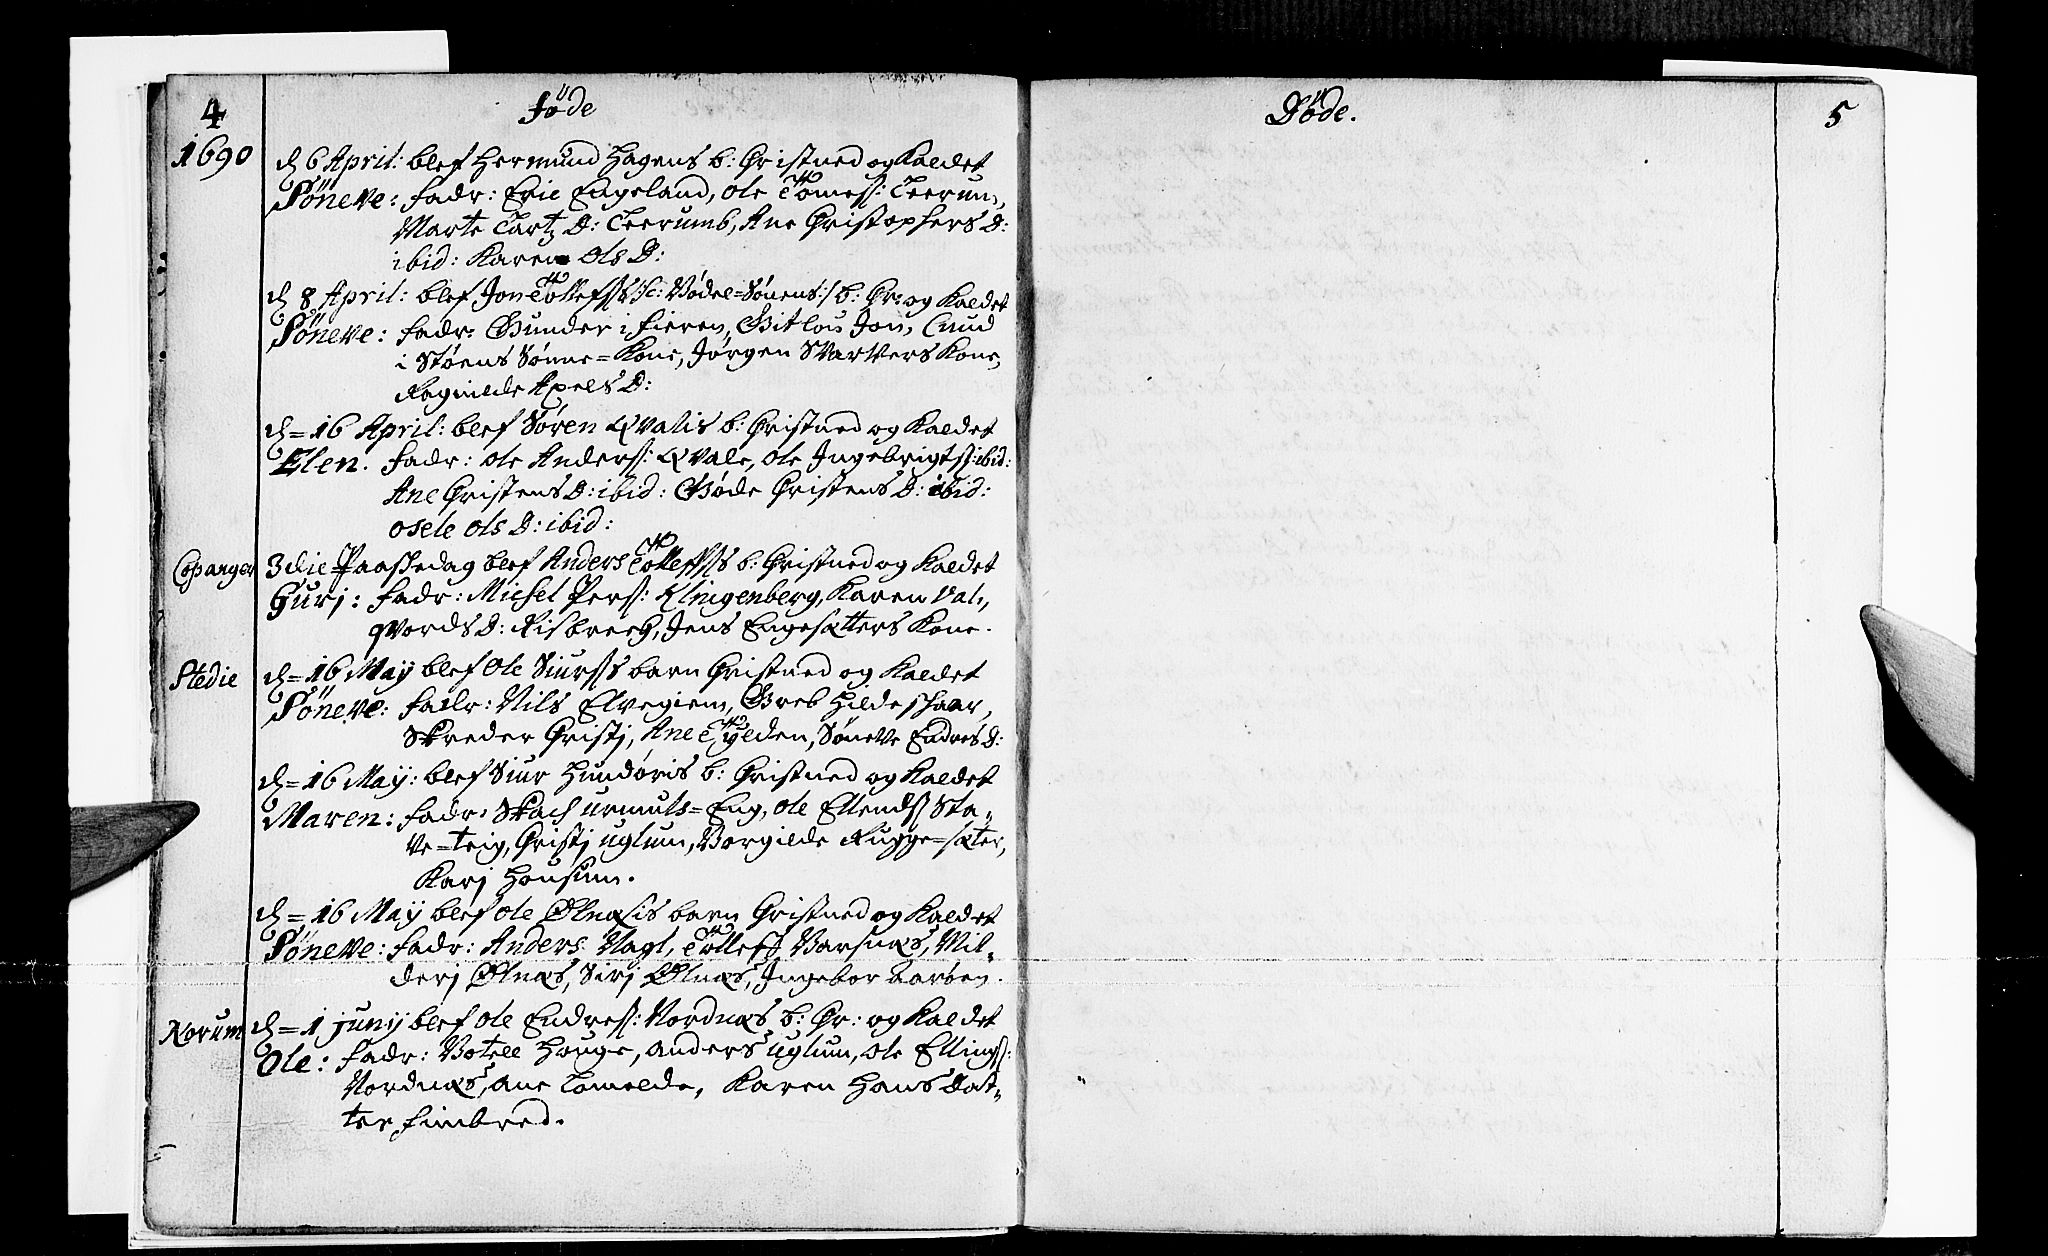 4
Föde
1690
d 6 April: blef Hermund Hagens b: Christned og Kaldet
Söneve: fadr: Eric Engeland, Ole Tomess: Leerum,
Marte Lartz D: Leerumb, Ane Christophers D:
ibid: Karen Ols D:
d 8 April: blef Jon Tollefss /:sc: Bödel=Sönens:/ b: Chr: og Kaldet
Söneve: fadr: Gunder i Fieren, Gitlou Jon, Cnud
i Støens Sønne=Kone, Jørgen Svarvers Kone,
Ragnilde Axels D:
d= 16 April: blef Søren Qvalis b: Christned og Kaldet
Elen. fadr: ole Anderss: Qvale, Ole Ingebrigtss: ibid:
Ane Christens D: ibid: Gøde Christens D: ibid:
osele ols D: ibid:
Copanger
3die Paaskedag blef Anders Tolleffss b: Christned og Kaldet
Gurj: fadr: Michel Perss: Klingenberg, Karen Val,,
qvords D: Risbrech, Jens Engesætters Kone.
Stedie
d= 16 Maij blef Ole Siurss barn Christned og Kaldet
Söneve: fadr: Nils Elvegiem, Greb Hildeschaar,
Skreder Christj, Ane Tylden, Søneve Endres D:
d= 16 Maij: blef Siur Hundøris b: Christned og Kaldet
Maren: fadr: Skach urmuls=Eng, Ole Ellendss Sta,,
ve=teig, Christj uglum, Borgilde Rugge=sæter,
Karj Housum.
d= 16 Maij blef ole Ølnæsis barn Christned og Kaldet
Söneve: fadr: Anders Nagl, Tolleff Barsnæs, Mil,,
derj Ølnæs, Serj Ølnæs, Ingebor Loftesnes.
Norum
d= 1 Junij blef Ole Endress: Nordnæs b: Chr: og Kaldet
Ole: fadr: Botell Houge, anders uglum, ole Ellingss:
Nordnæs, ane Lomelde, Karen Hans Dat,,
ter fimbred.
Döde.
5